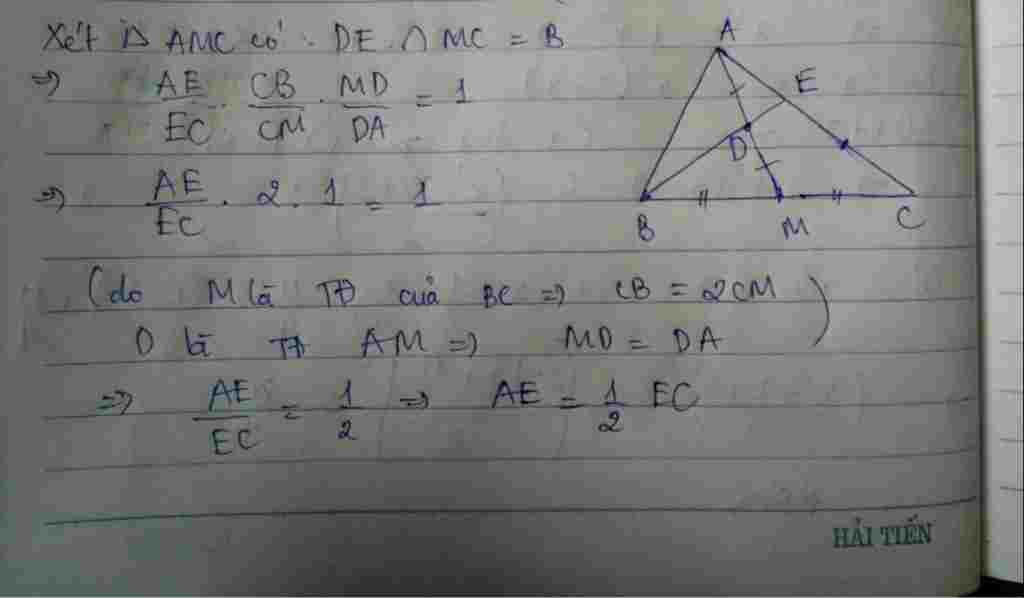 Xét Δ AMC có: DE ∩ MC = B
⇒ AE/EC . CB/CM . MD/DA = 1
⇒ AE/EC . 2 . 1 = 1
(do M là TĐ của BC ⇒ CB = 2CM
D là TĐ AM ⇒ MD = DA)
⇒ AE/EC = 1/2 ⇒ AE = 1/2 EC
A
E
D
B
M
C
HẢI TIẾN